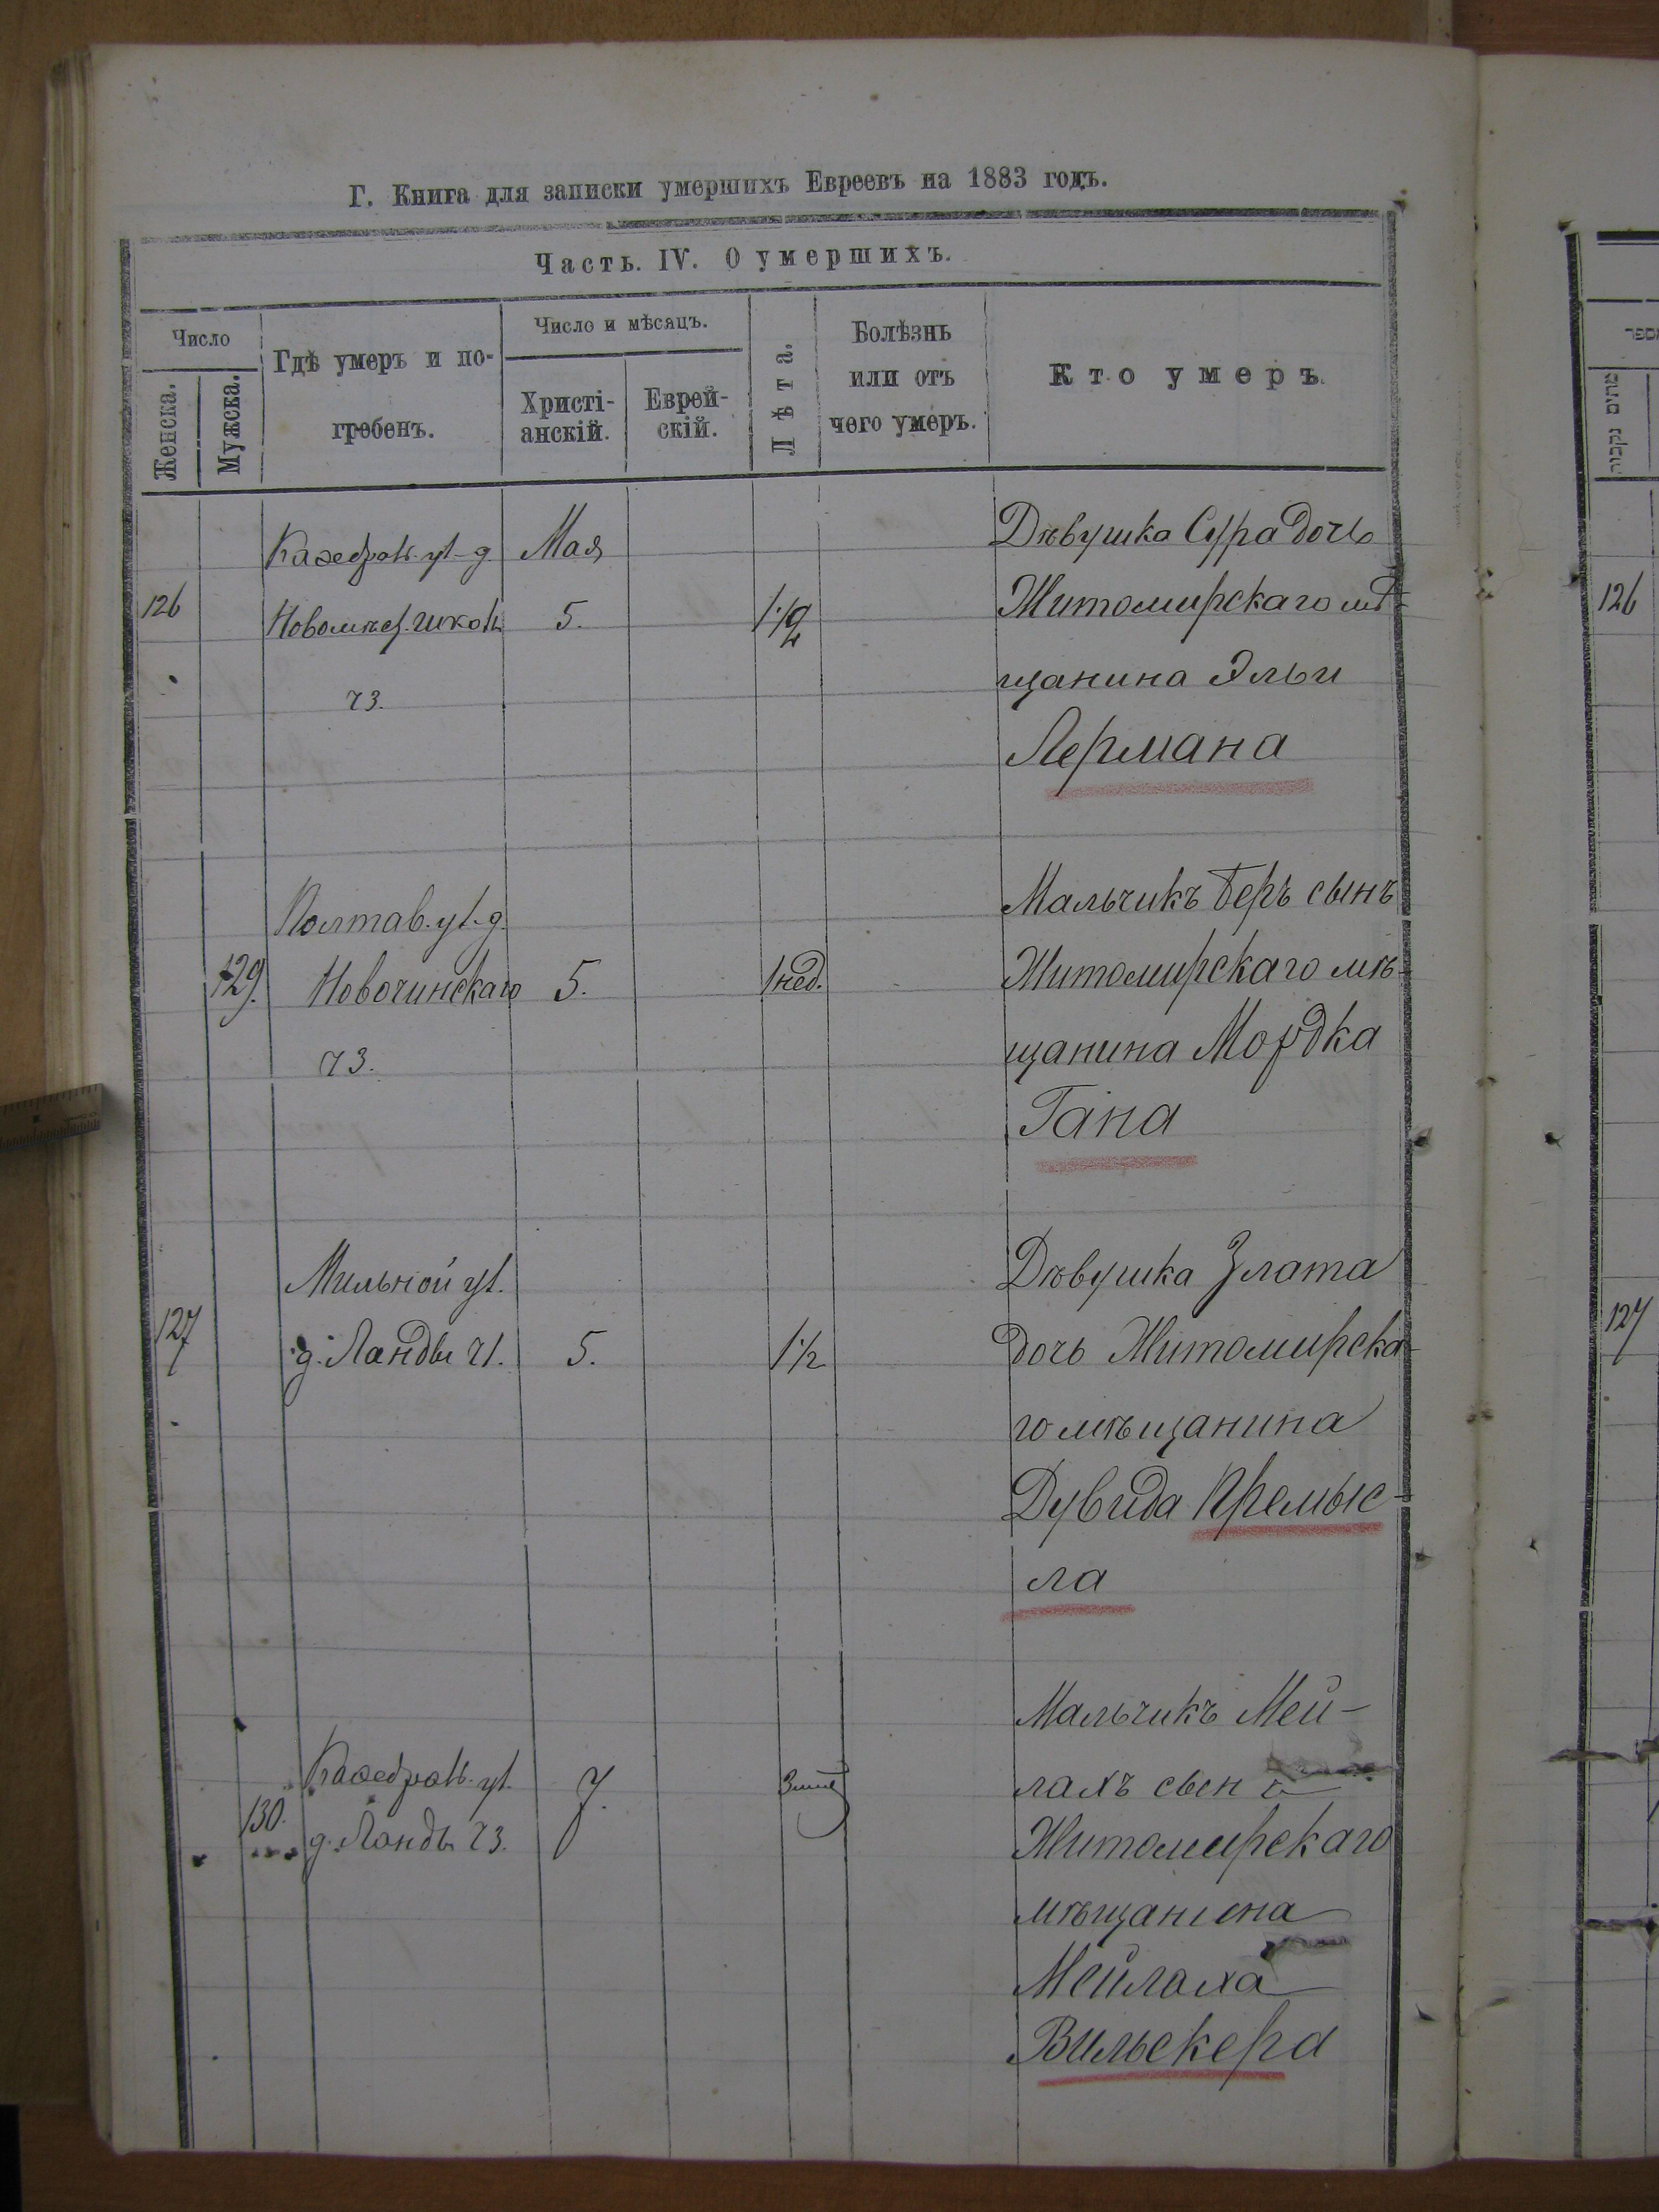 Г. Книга для записки умершихъ Евреевъ на 1883 годъ.
Часть. IV. О умершихъ.
Число
Женска.
Мужска.
Гдѣ умеръ и по-
гребенъ.
Число и мѣсяцъ.
Христі-
анскій.
Еврей-
скій.
Лѣта.
Болѣзнь
или отъ
чего умеръ.
Кто умеръ.
126
ул. д
ч3.
Мая
5.
1 1/2
Дѣвушка Сура дочь
Житомирскаго мѣ-
щанина Эльи
Лермана
129.
Полтав. ул. д.
Новочинскаго
ч3.
5.
1 нед.
Мальчикъ Беръ сынъ
Житомирскаго мѣ-
щанина Мордка
Гана
127
Мильной ул.
д. Ланды ч1.
5.
1 1/2
Дѣвушка Злата
дочь Житомирска-
го мѣщанина
Дувида Премыс-
ла
130.
ул.
д. Ланды ч3.
7.
Мальчикъ Мей-
лахъ сынъ
Житомирскаго
мѣщанина
Мейлаха
Вильскера
126
127